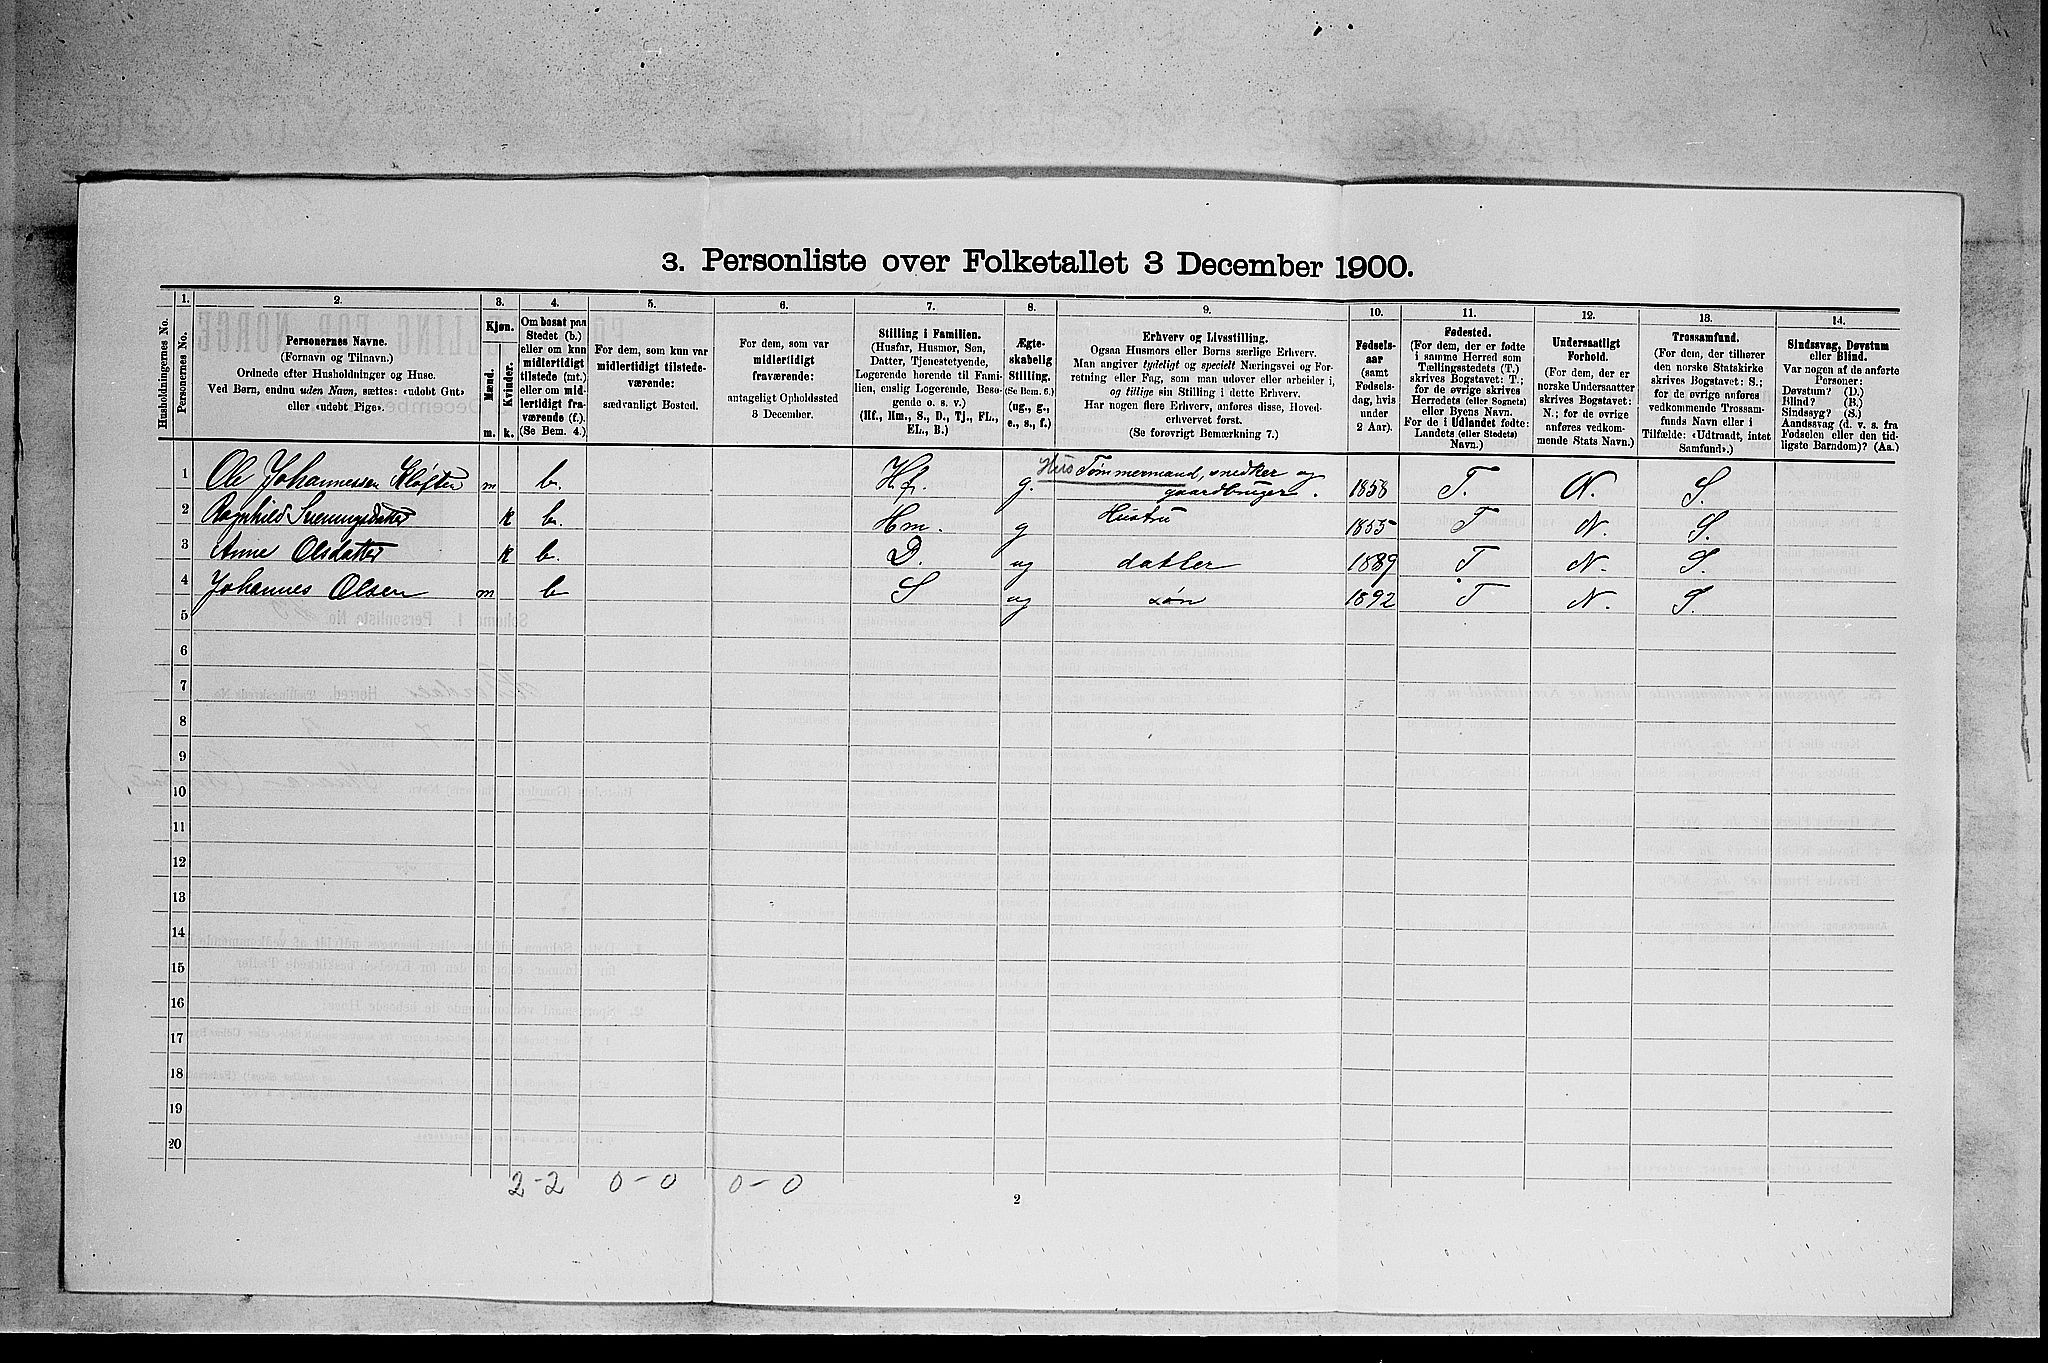 3. Personliste over Folketallet 3 December 1900.
1. 2. 3. 4. 5. 6. 7. 8. 9. 10. 11. 12. 13. 14.
Husholdningernes No.
Personernes No.
Personernes Navne.
(Fornavn og Tilnavn.)
Ordnede efter Husholdninger og Huse.
Ved Børn, endnu uden Navn, sættes: «udøbt Gut»
eller «udøbt Pige».
Kjøn.
Mænd.
Kvinder.
m. k.
Om bosat paa
Stedet (b.)
eller om kun
midlertidigt
tilstede (mt.)
eller om mid-
lertidigt fra-
værende (f.).
(Se Bem. 4.)
For dem, som kun var
midlertidigt tilstede-
værende:
sædvanligt Bosted.
For dem, som var
midlertidigt
fraværende:
antageligt Opholdssted
3 December.
Stilling i Familien.
(Husfar, Husmor, Søn,
Datter, Tjenestetyende,
Logerende hørende til Fami-
lien, enslig Logerende, Besø-
gende o. s. v.)
(Hf., Hm., S., D., Tj., FL.,
EL., B.)
Ægte-
skabelig
Stilling.
(Se Bem. 6.)
(ug., g.,
e., s., f.)
Erhverv og Livsstilling.
Ogsaa Husmors eller Børns særlige Erhverv.
Man angiver tydeligt og specielt Næringsvei og For-
retning eller Fag, som man udøver eller arbeider i,
og tillige sin Stilling i dette Erhverv.
Har nogen flere Erhverv, anføres disse, Hoved-
erhvervet først.
(Se forøvrigt Bemærkning 7.)
Fødsels-
aar
(samt
Fødsels-
dag, hvis
under
2 Aar).
Fødested.
(For dem, der er fødte
i samme Herred som
Tællingsstedets (T.)
skrives Bogstavet: T.;
for de øvrige skrives
Herredets (eller Sognets)
eller Byens Navn.
For de i Udlandet fødte:
Landets (eller Stedets)
Navn.)
Undersaatligt
Forhold.
(For dem, der er
norske Undersaatter
skrives Bogstavet:
N.; for de øvrige
anføres vedkom-
mende Stats Navn.)
Trossamfund.
(For dem, der tilhører
den norske Statskirke
skrives Bogstavet: S.;
for de øvrige anføres
vedkommende Trossam-
funds Navn eller i
Tilfælde: «Udtraadt, intet
Samfund».)
Sindssvag, Døvstum
eller Blind.
Var nogen af de anførte
Personer:
Døvstum? (D.)
Blind? (B.)
Sindssyg? (S.)
Aandssvag (d. v. s. fra
Fødselen eller den tid-
ligste Barndom)? (Aa.)
1 Ole Johannessen Kløfter m b. Hf. g. Hus Tømmermand, snedker og
gaardbruger. 1858 T. N. S.
2 Ragnhild Sveinungsdatter k b. Hm. g Hustru 1855 T N. S.
3 Anne Olsdatter k b. D. ug datter 1889 T N. S.
4 Johannes Olsen m b S ug søn 1892 T N. S.
5
6
7
8
9
10
11
12
13
14
15
16
17
18
19
20
2-2 0-0 0-0
2